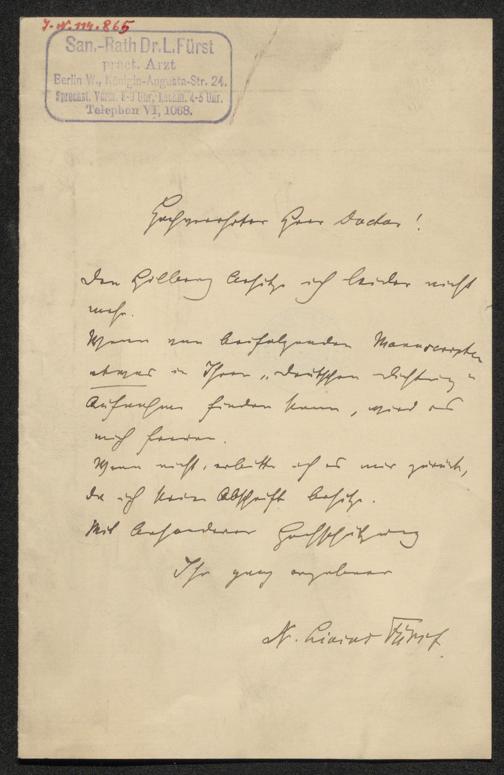 J. N. 114.865
San.-Rath Dr. L. Fürst
pract. Arzt
Berlin W., Königin-Augusta-Str. 24.
Sprechst. Vorm. 8-9 Uhr, Nachm. 4-5 Uhr.
Telephon VI, 1068.
Hochverehrter Herr Doctor!
Den besitze ich leider nicht
mehr.
Wenn von beifolgenden Manuscripten
etwas in Ihrer „Deutschen Dichtung"
Aufnahme finden kann, wird es
mich freuen.
Wenn nicht, erbitte ich es mir zurück,
da ich keine Abschrift besitze.
Mit besonderer Hochschätzung
Ihr ganz ergebener
Dr. Livius Fürst.